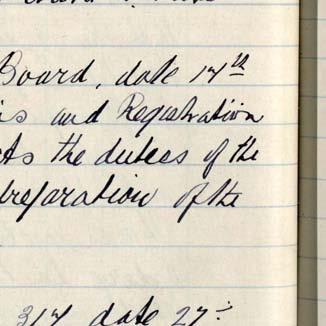 Board, date 14th
and Registration
the duties of the
preparation of the
317 date 27